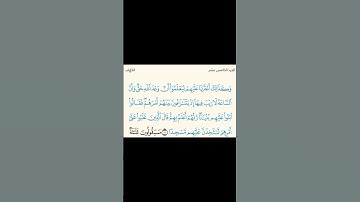 الجزء الخامس عشر
الكهف
وَكَذَٰلِكَ أَعْثَرْنَا عَلَيْهِمْ لِيَعْلَمُوٓا۟ أَنَّ وَعْدَ ٱللَّهِ حَقٌّ وَأَنَّ
ٱلسَّاعَةَ لَا رَيْبَ فِيهَآ إِذْ يَتَنَٰزَعُونَ بَيْنَهُمْ أَمْرَهُمْ ۖ فَقَالُوا۟
ٱبْنُوا۟ عَلَيْهِم بُنْيَٰنًا ۖ رَّبُّهُمْ أَعْلَمُ بِهِمْ ۚ قَالَ ٱلَّذِينَ غَلَبُوا۟ عَلَىٰٓ
أَمْرِهِمْ لَنَتَّخِذَنَّ عَلَيْهِم مَّسْجِدًا ۝ سَيَقُولُونَ ثَلَٰثَةٌ